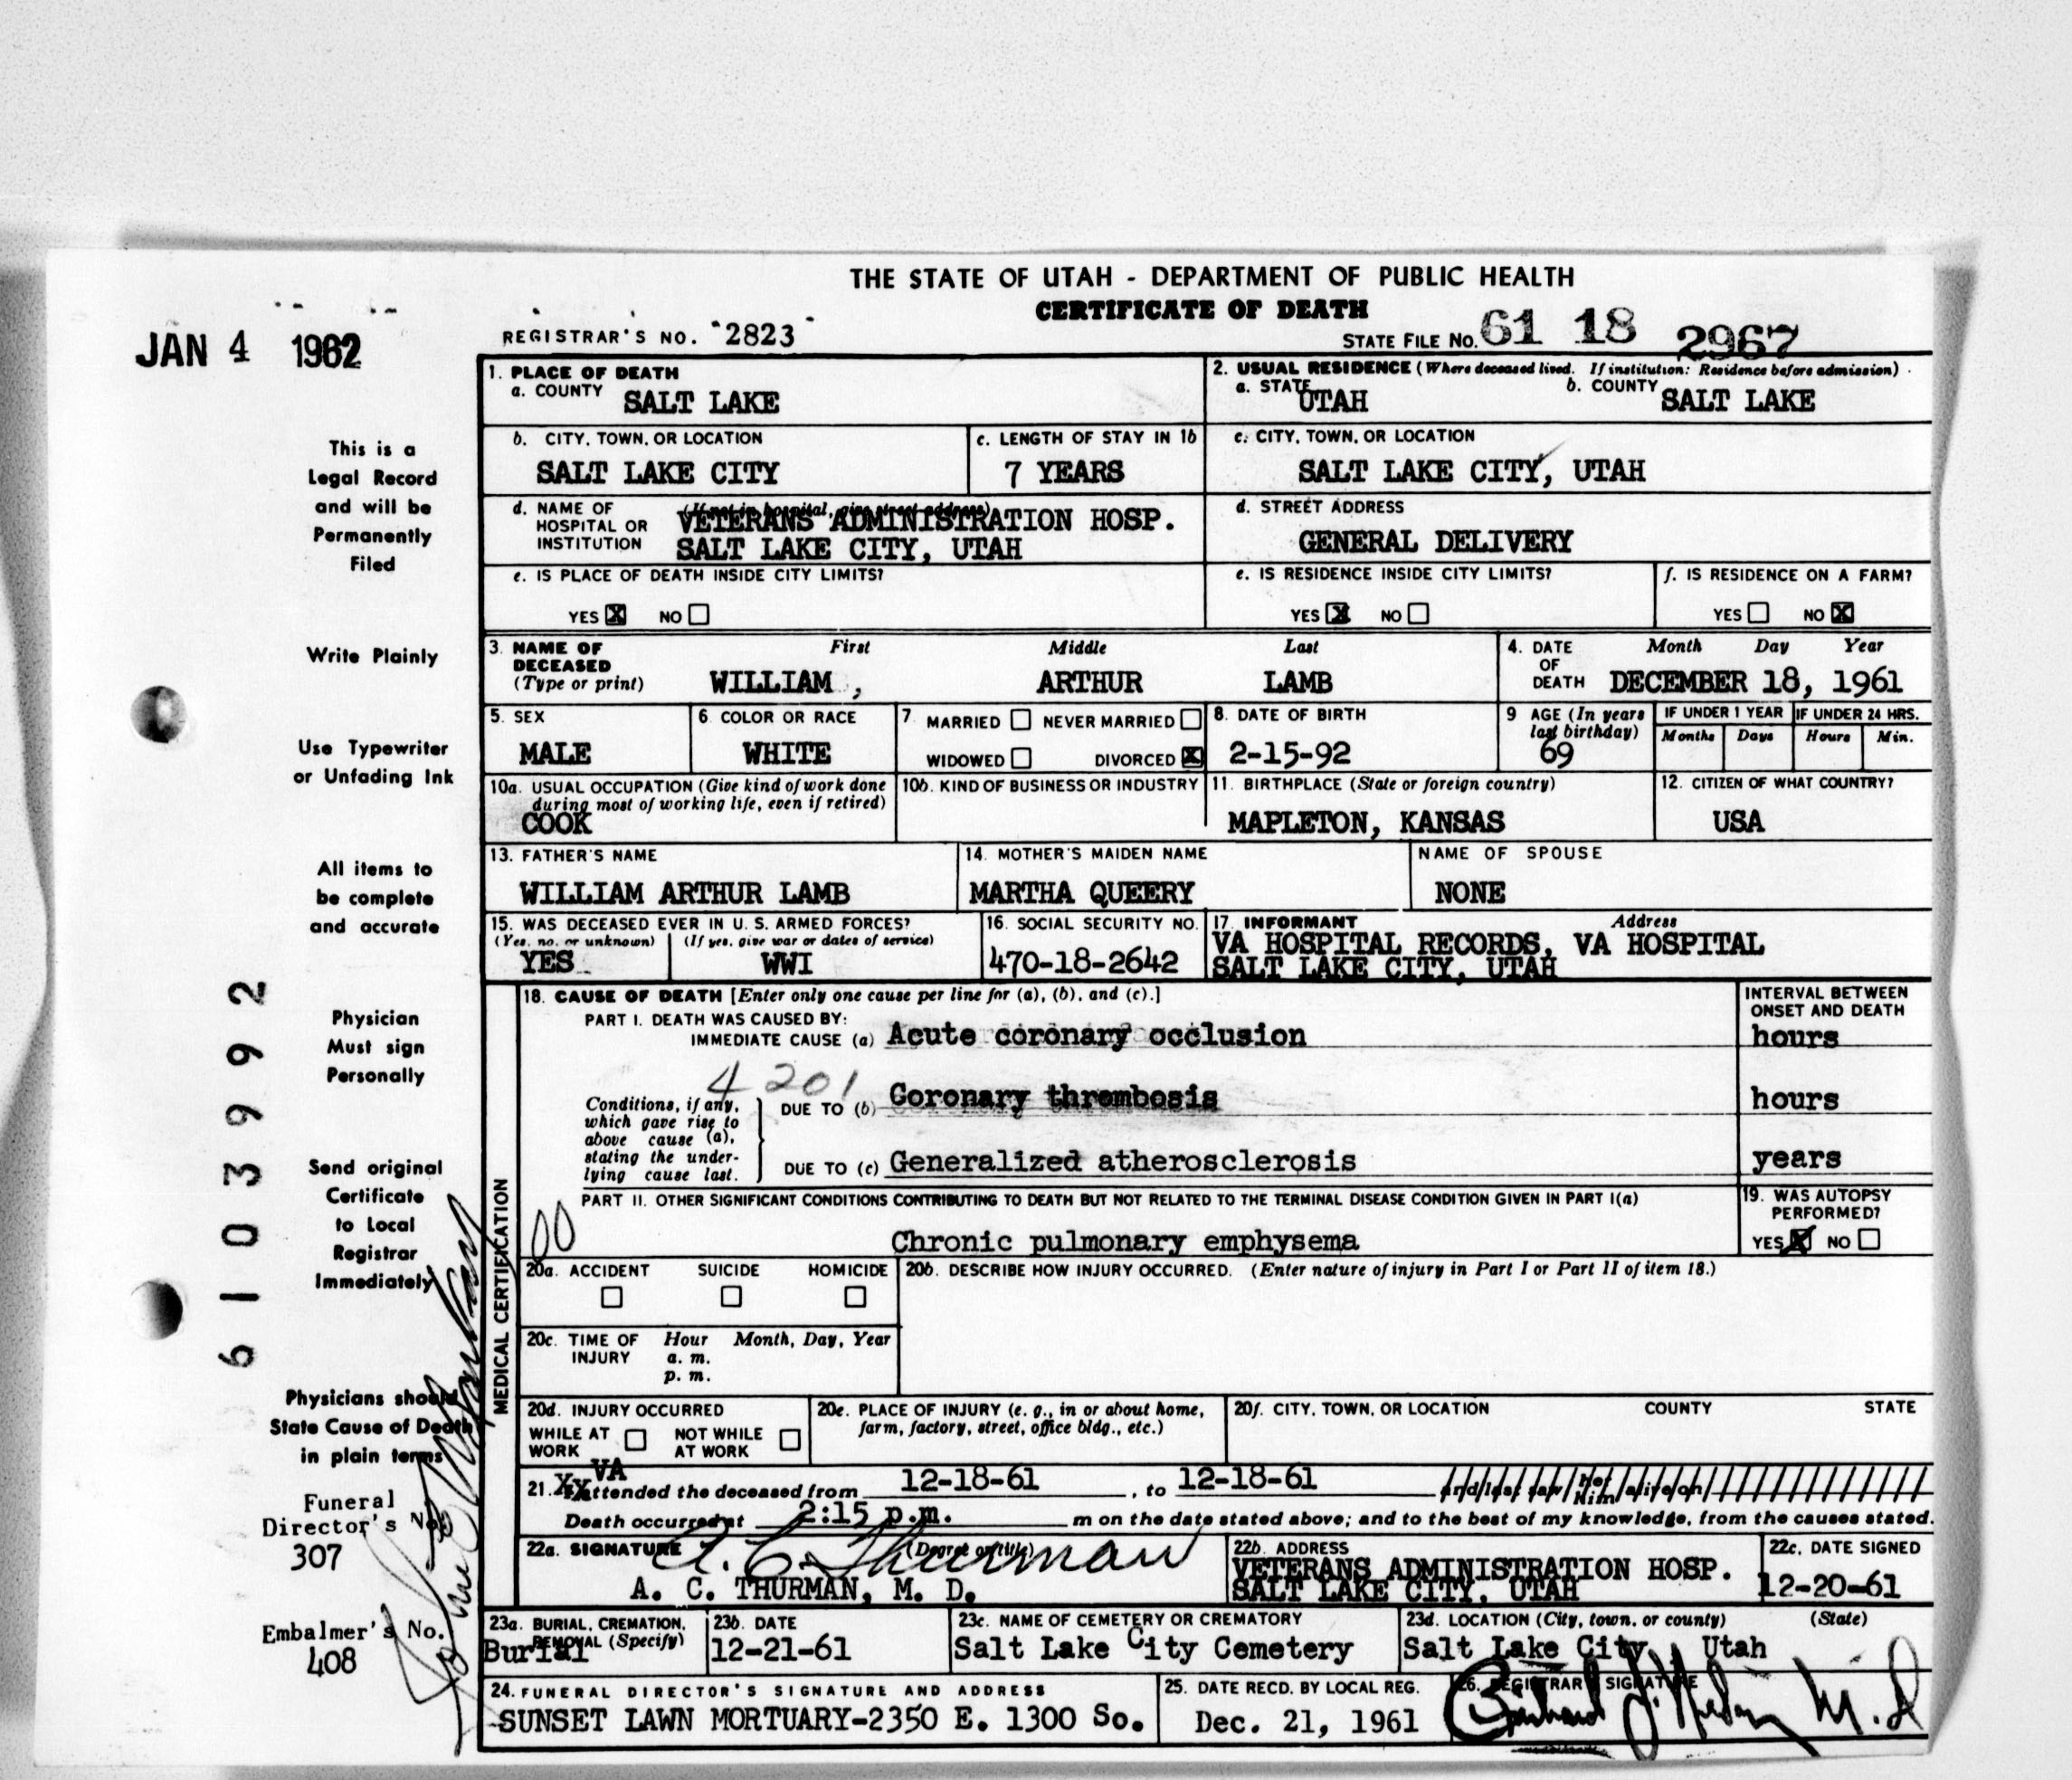 THE STATE OF UTAH - DEPARTMENT OF PUBLIC HEALTH
CERTIFICATE OF DEATH
JAN 4 1962
REGISTRAR'S NO. 2823
STATE FILE NO. 61 18 2967
1. PLACE OF DEATH
a. COUNTY SALT LAKE
2. USUAL RESIDENCE (Where deceased lived. If institution: Residence before admission)
a. STATE UTAH b. COUNTY SALT LAKE
b. CITY, TOWN, OR LOCATION
SALT LAKE CITY
c. LENGTH OF STAY IN 1b
7 YEARS
c. CITY, TOWN, OR LOCATION
SALT LAKE CITY, UTAH
d. NAME OF HOSPITAL OR INSTITUTION (If not in hospital, give street address)
VETERANS ADMINISTRATION HOSP.
SALT LAKE CITY, UTAH
d. STREET ADDRESS
GENERAL DELIVERY
e. IS PLACE OF DEATH INSIDE CITY LIMITS?
YES X NO
e. IS RESIDENCE INSIDE CITY LIMITS?
YES X NO
f. IS RESIDENCE ON A FARM?
YES NO X
3. NAME OF DECEASED (Type or print)
First Middle Last
WILLIAM , ARTHUR LAMB
4. DATE OF DEATH Month Day Year
DECEMBER 18, 1961
5. SEX
MALE
6. COLOR OR RACE
WHITE
7 MARRIED NEVER MARRIED
WIDOWED DIVORCED X
8. DATE OF BIRTH
2-15-92
9 AGE (In years last birthday)
69
IF UNDER 1 YEAR
Months Days
IF UNDER 24 HRS.
Hours Min.
10a. USUAL OCCUPATION (Give kind of work done during most of working life, even if retired)
COOK
10b. KIND OF BUSINESS OR INDUSTRY
11. BIRTHPLACE (State or foreign country)
MAPLETON, KANSAS
12. CITIZEN OF WHAT COUNTRY?
USA
13. FATHER'S NAME
WILLIAM ARTHUR LAMB
14. MOTHER'S MAIDEN NAME
MARTHA QUEERY
NAME OF SPOUSE
NONE
15. WAS DECEASED EVER IN U. S. ARMED FORCES?
(Yes, no, or unknown) (If yes, give war or dates of service)
YES WWI
16. SOCIAL SECURITY NO.
470-18-2642
17. INFORMANT Address
VA HOSPITAL RECORDS, VA HOSPITAL
SALT LAKE CITY, UTAH
MEDICAL CERTIFICATION
18. CAUSE OF DEATH [Enter only one cause per line for (a), (b), and (c).]
INTERVAL BETWEEN ONSET AND DEATH
PART I. DEATH WAS CAUSED BY:
IMMEDIATE CAUSE (a) Acute coronary occlusion hours
4 201
Conditions, if any, which gave rise to above cause (a), stating the underlying cause last.
DUE TO (b) Coronary thrombosis hours
DUE TO (c) Generalized atherosclerosis years
PART II. OTHER SIGNIFICANT CONDITIONS CONTRIBUTING TO DEATH BUT NOT RELATED TO THE TERMINAL DISEASE CONDITION GIVEN IN PART I(a)
00
Chronic pulmonary emphysema
19. WAS AUTOPSY PERFORMED?
YES X NO
20a. ACCIDENT SUICIDE HOMICIDE
20b. DESCRIBE HOW INJURY OCCURRED. (Enter nature of injury in Part I or Part II of item 18.)
20c. TIME OF INJURY Hour Month, Day, Year
a. m.
p. m.
20d. INJURY OCCURRED
WHILE AT WORK NOT WHILE AT WORK
20e. PLACE OF INJURY (e. g., in or about home, farm, factory, street, office bldg., etc.)
20f. CITY, TOWN, OR LOCATION COUNTY STATE
21. VA attended the deceased from 12-18-61, to 12-18-61 and last saw her him alive on
Death occurred at 2:15 p.m. m on the date stated above; and to the best of my knowledge, from the causes stated.
22a. SIGNATURE (Degree or title)
A. C. Thurman
A. C. THURMAN, M. D.
22b. ADDRESS
VETERANS ADMINISTRATION HOSP.
SALT LAKE CITY, UTAH
22c. DATE SIGNED
12-20-61
23a. BURIAL, CREMATION, REMOVAL (Specify)
Burial
23b. DATE
12-21-61
23c. NAME OF CEMETERY OR CREMATORY
Salt Lake City Cemetery
23d. LOCATION (City, town, or county) (State)
Salt Lake City, Utah
24. FUNERAL DIRECTOR'S SIGNATURE AND ADDRESS
SUNSET LAWN MORTUARY-2350 E. 1300 So.
25. DATE RECD. BY LOCAL REG.
Dec. 21, 1961
26. REGISTRAR'S SIGNATURE
M.D
This is a
Legal Record
and will be
Permanently
Filed
Write Plainly
Use Typewriter
or Unfading Ink
All items to
be complete
and accurate
Physician
Must sign
Personally
Send original
Certificate
to Local
Registrar
Immediately
Physicians should
State Cause of Death
in plain terms
Funeral
Director's No.
307
Embalmer's No.
408
6103992